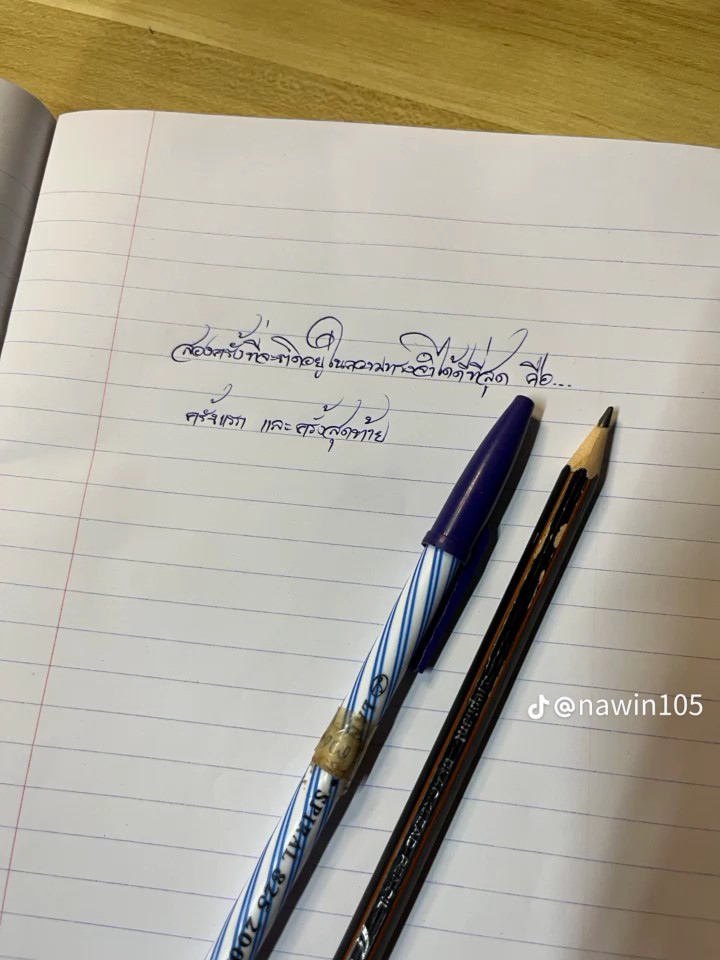 สองครั้งที่จะติดอยู่ในความทรงจำได้ดีที่สุด คือ...
ครั้งแรก และครั้งสุดท้าย
@nawin105
SPIRAL 825 200